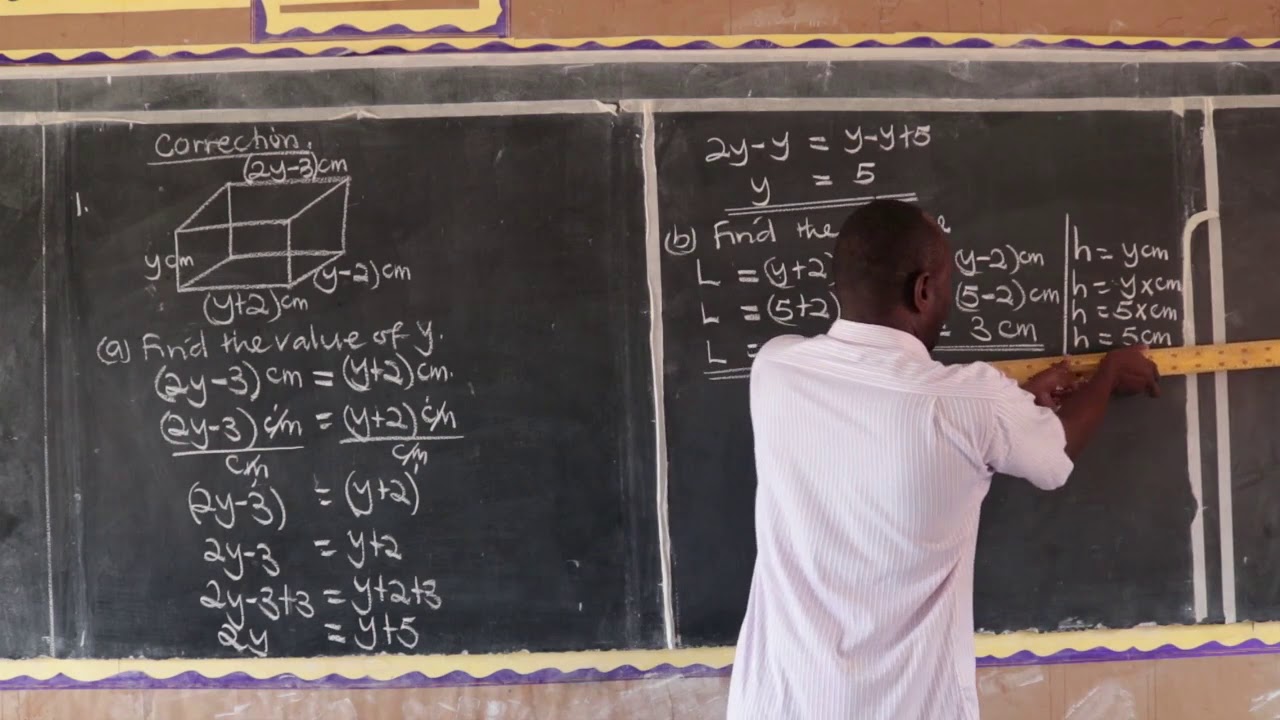 Correction.
(2y-3)cm
1.
ycm
(y-2)cm
(y+2)cm
(a) Find the value of y.
(2y-3)cm = (y+2)cm.
(2y-3)cm = (y+2)cm
cm cm
(2y-3) = (y+2)
2y-3 = y+2
2y-3+3 = y+2+3
2y = y+5
2y-y = y-y+5
y = 5
(b) Find the
L = (y+2)
L = (5+2)
L =
(y-2)cm
(5-2)cm
= 3cm
h = ycm
h = yxcm
h = 5xcm
h = 5cm